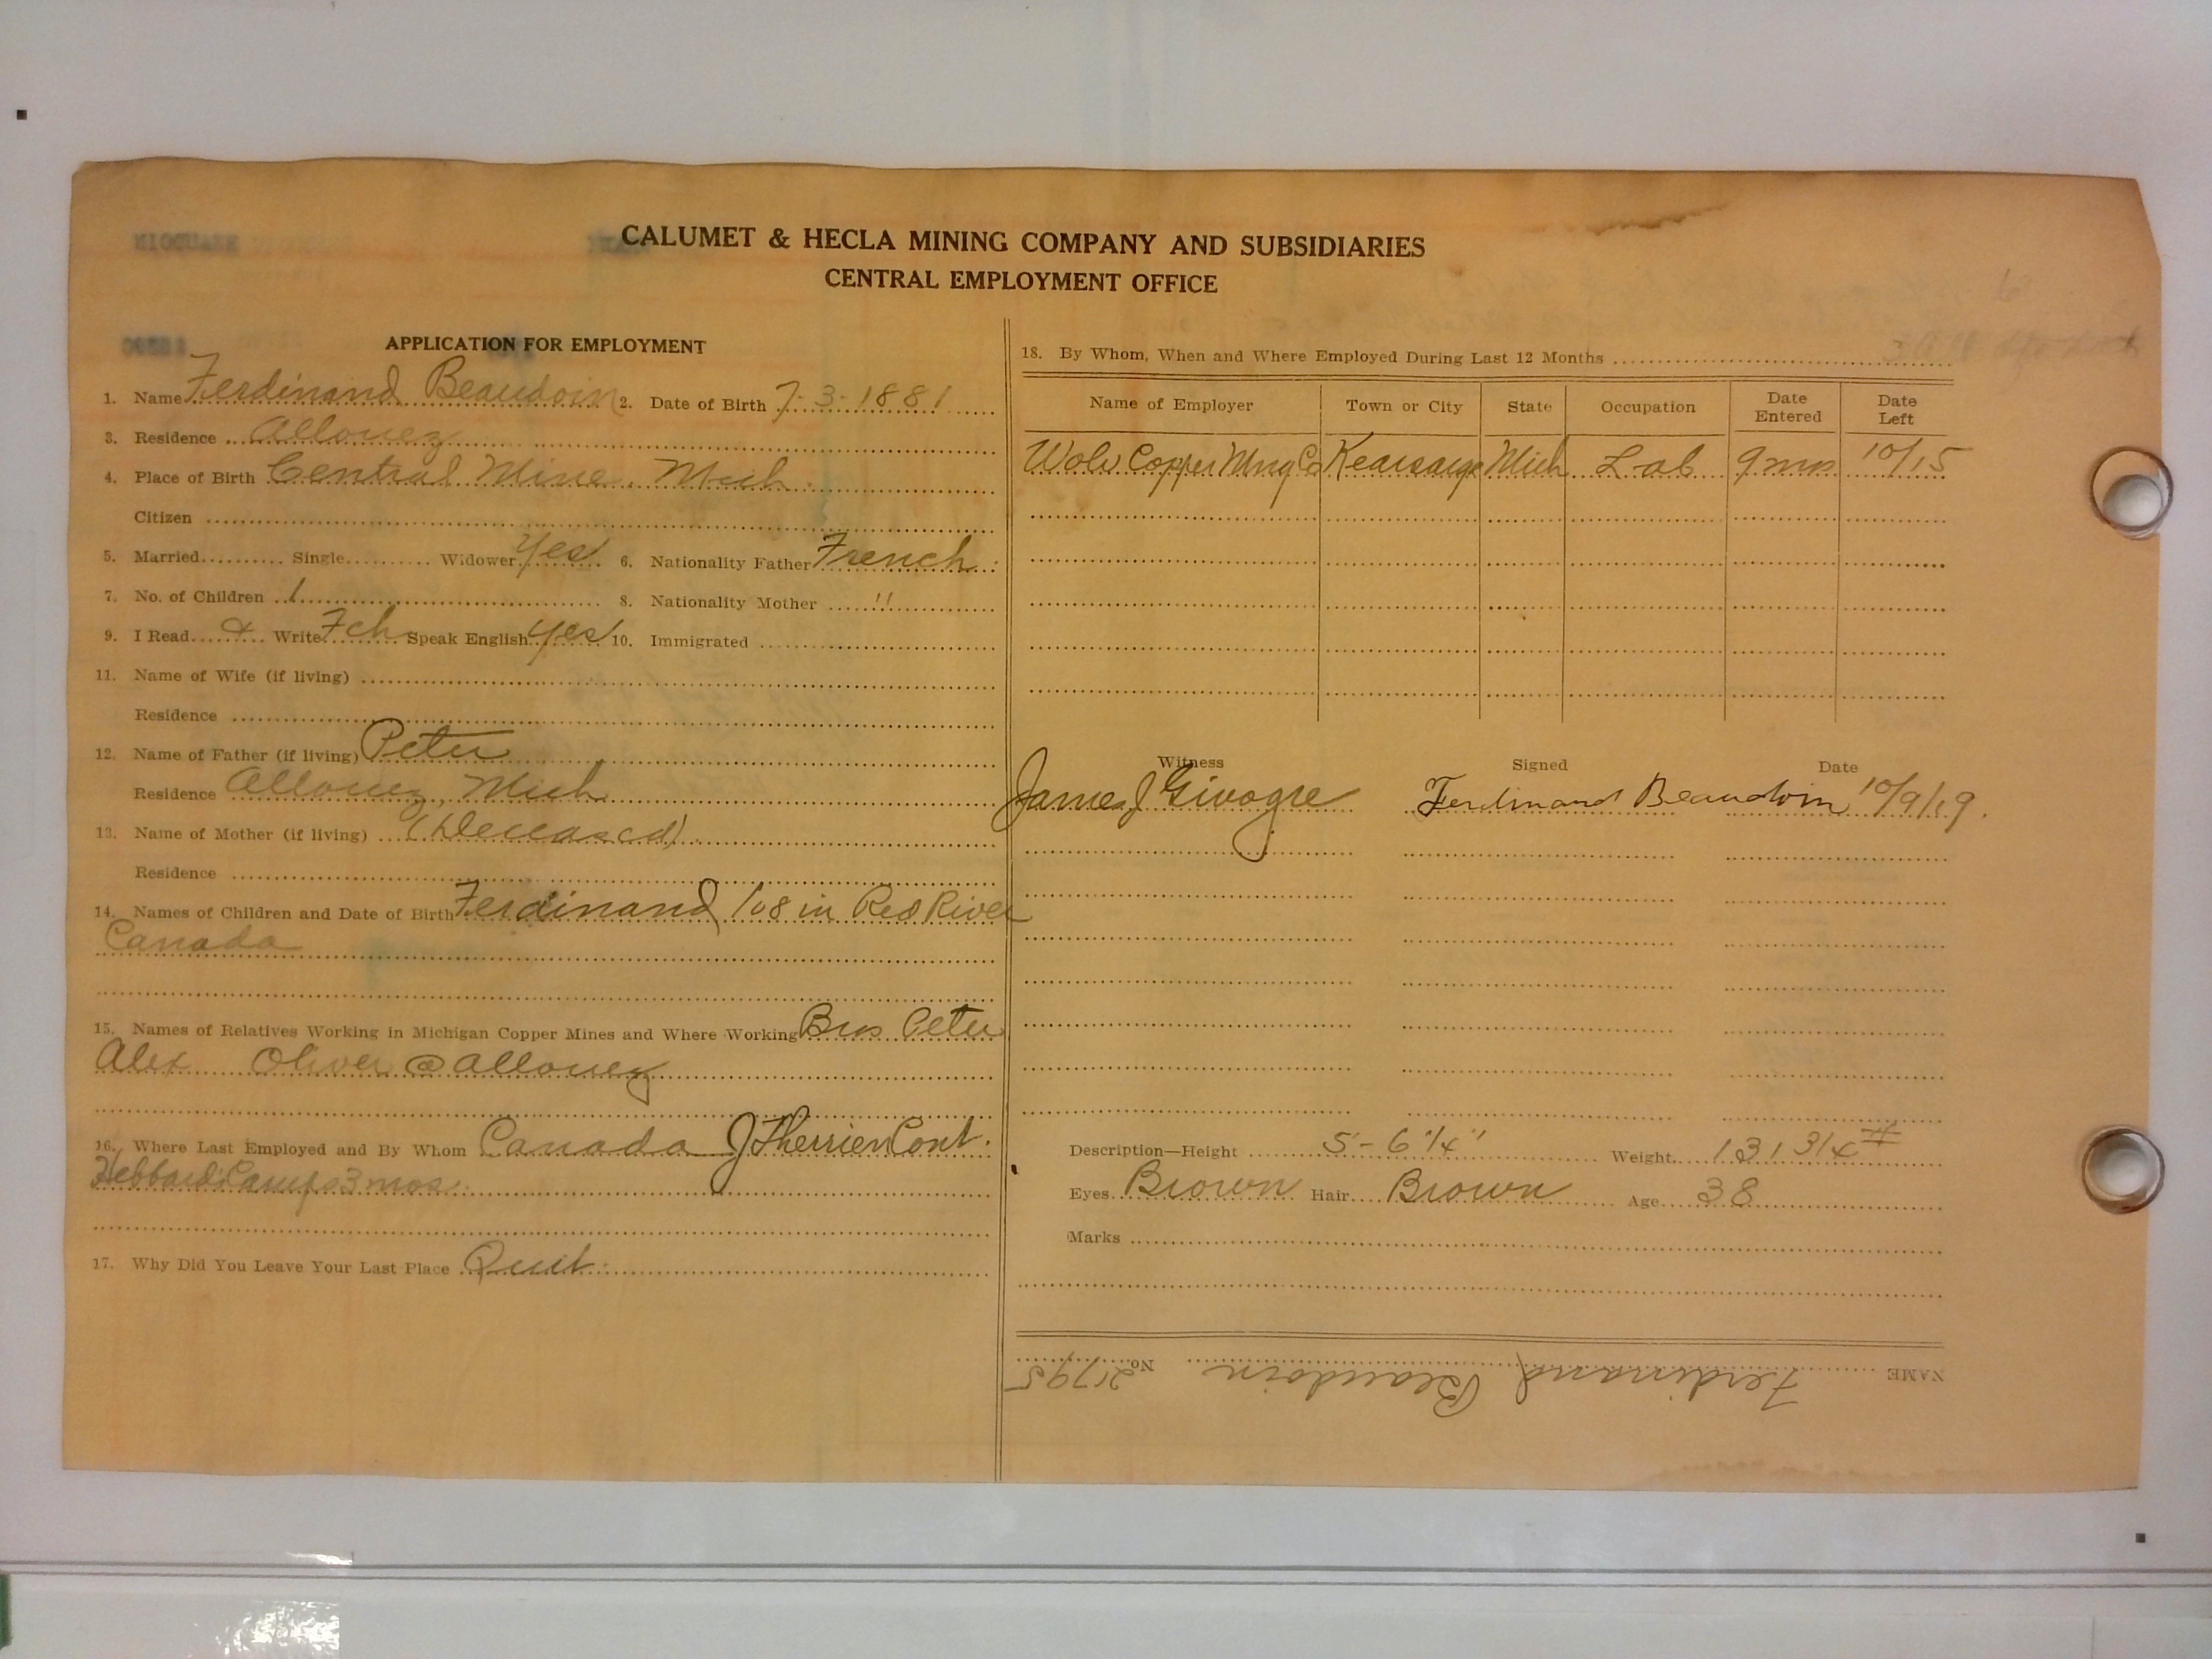 CALUMET & HECLA MINING COMPANY AND SUBSIDIARIES
CENTRAL EMPLOYMENT OFFICE
APPLICATION FOR EMPLOYMENT
1. Name Ferdinand Beaudoin 2. Date of Birth 7-3-1881
3. Residence Allouez
4. Place of Birth Central Mine. Mich
Citizen
5. Married Single Widower Yes 6. Nationality Father French
7. No. of Children 1 8. Nationality Mother "
9. I Read & Write Fch Speak English Yes 10. Immigrated
11. Name of Wife (if living)
Residence
12. Name of Father (if living) Peter
Residence Allouez, Mich
13. Name of Mother (if living) (Deceased)
Residence
14. Names of Children and Date of Birth Ferdinand 108 in Red River
Canada
15. Names of Relatives Working in Michigan Copper Mines and Where Working Bros Peter
Alex Oliver @ Allouez
16. Where Last Employed and By Whom Canada J Therrien Cont.
Hebbard Camps 3 mos.
17. Why Did You Leave Your Last Place Quit
18. By Whom, When and Where Employed During Last 12 Months
Name of Employer Town or City State Occupation Date Entered Date Left
Wolv Copper Mng Co Kearsarge Mich Lab 9 mos 10/15
Witness Signed Date
James J Givogre Ferdinand Beaudoin 10/9/19.
Description—Height 5'-6 1/4" Weight 131 3/4 #
Eyes Brown Hair Brown Age 38
Marks
NAME Ferdinand Beaudoin No. 21795